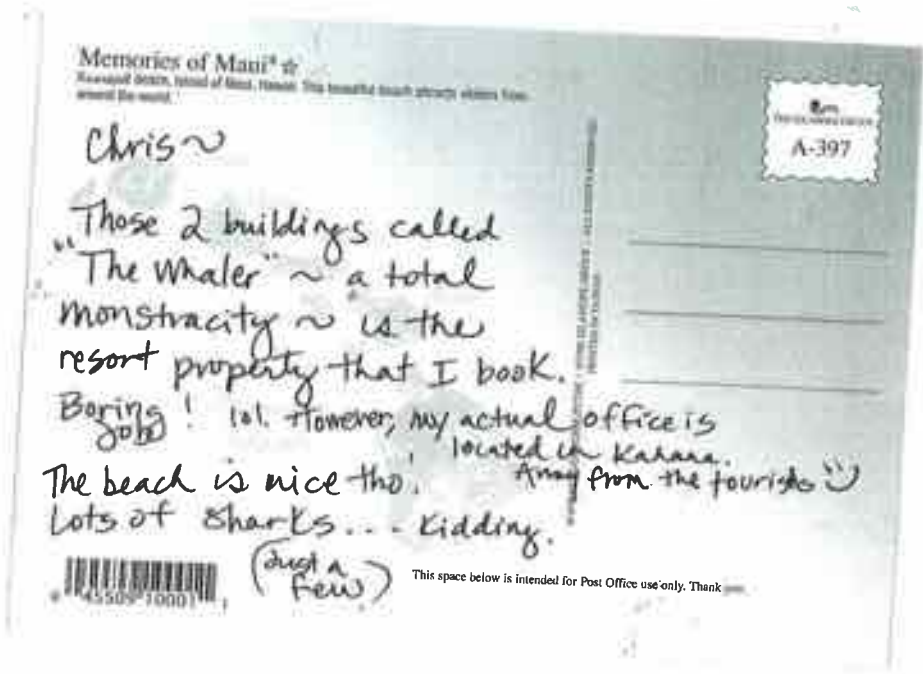 Memories of Maui® ☆
Island of Maui, Hawaii. This beautiful beach attracts visitors from
around the world.
A-397
Chris~
Those 2 buildings called
"The Whaler" ~ a total
monstracity ~ is the
resort property that I book.
Boring Job! lol. However, my actual office is
located in Kahana.
Away from the tourists
The beach is nice tho'.
Lots of sharks... Kidding.
(Just a
few)
45509 10001
This space below is intended for Post Office use only. Thank